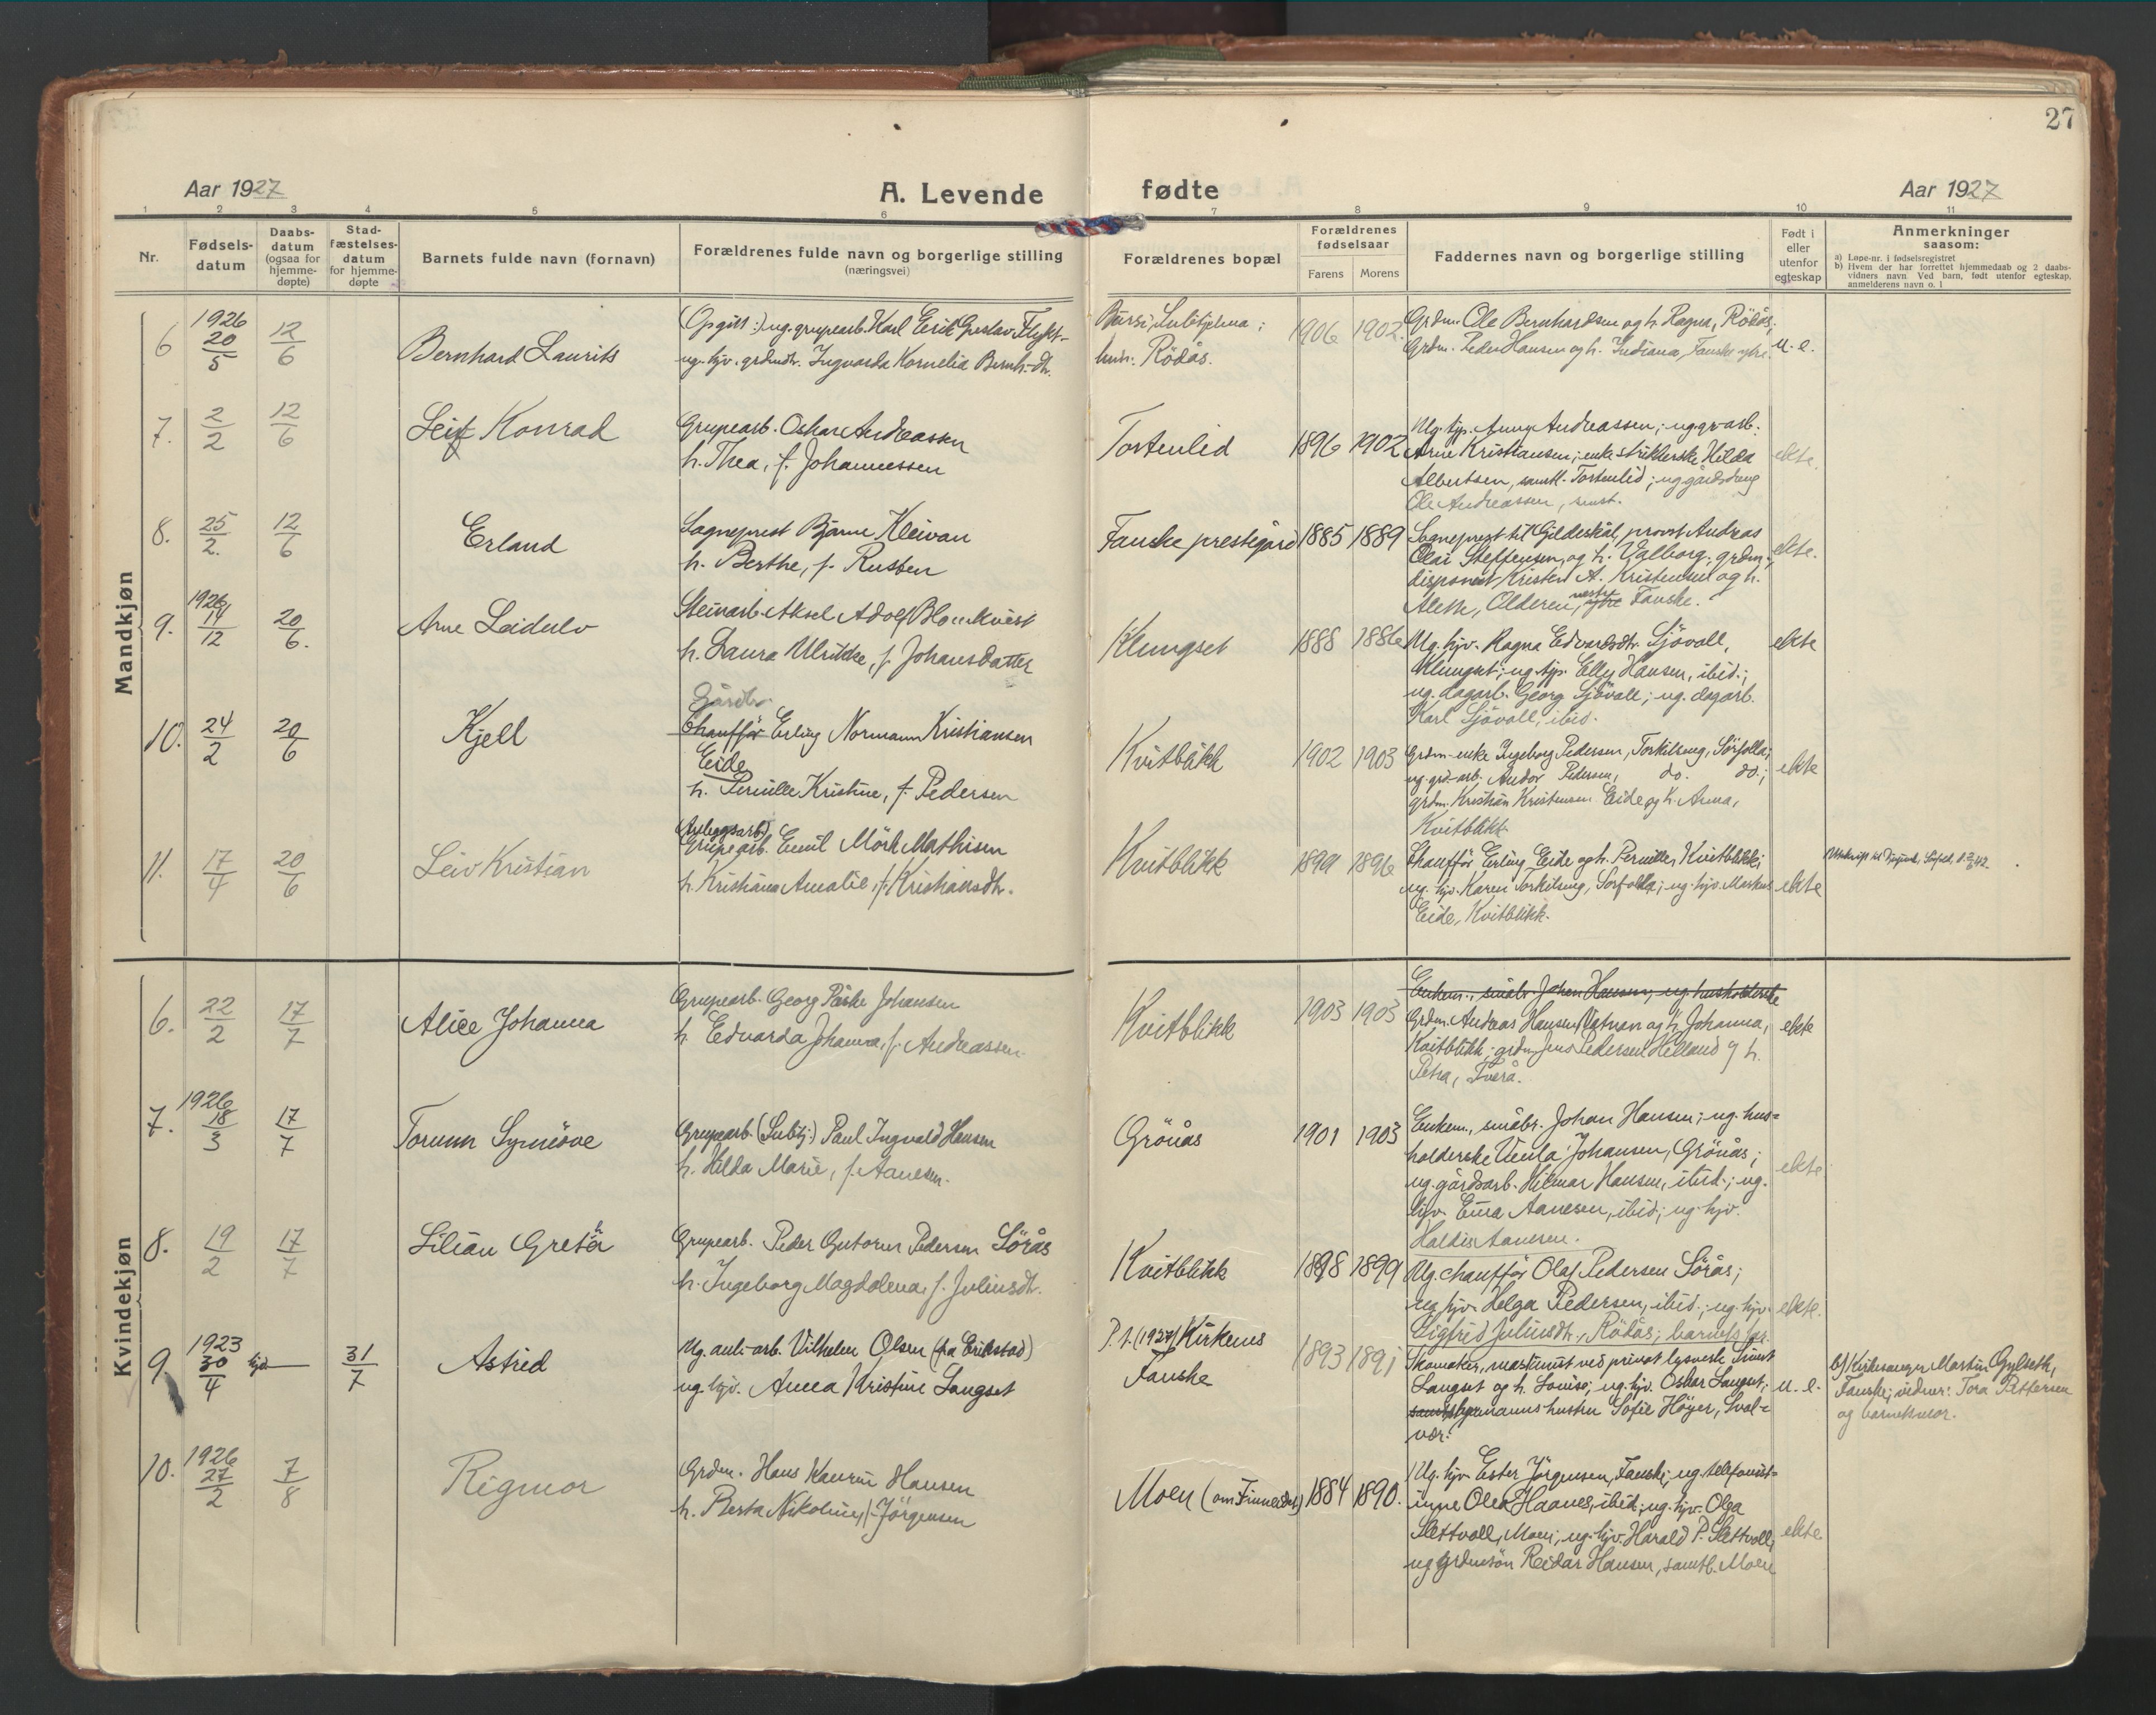 27
Aar 1927
A. Levende
fødte
Aar 1927
1 2 3 4 5 6 7 8 9 10 11
Nr.
Fødsels-
datum
Daabs-
datum
(ogsaa for
hjemme-
døpte)
Stad-
fæstelses-
datum
for hjemme-
døpte
Barnets fulde navn (fornavn)
Forældrenes fulde navn og borgerlige stilling
(næringsvei)
Forældrenes bopæl
Forældrenes
fødselsaar
Farens Morens
Faddernes navn og borgerlige stilling
Født i
eller
utenfor
egteskap
Anmerkninger
saasom:
a) Løpe-nr. i fødselsregistret
b) Hvem der har forrettet hjemmedaab og 2 daabs-
vidners navn. Ved barn, født utenfor egteskap,
anmelderens navn o. l.
Mandkjøn
6
1926
20/5
12/6
Bernhard Laurits
(Opgitt:) ug. grupearb. Karl Erik Gustav Flykt-
ug. hjv. grdmdtr. Ingvarda Kornelia Bernh.-dtr.
Fursi, Sulitjelma;
hun: Rödås.
1906 1902
Grdm. Ole Bernhardsen og h. Ragna, Rödås;
Grdm. Peder Hansen og h. Indiana, Fauske ytre.
u. e.
7.
2/2
12/6
Leif Konrad
Grupearb. Oskar Andreassen
h. Thea, f. Johannessen
Tortenlid
1896 1902
Ug. tjp. Anny Andreassen; ug. gr-arb.
Arne Kristiansen; enke strikkerske Hilda
Albertsen, samtl. Tortenlid; ug gårdsdreng
Ole Andreassen, smst.
ekte.
8.
25/2.
12/6
Erland
Sogneprest Bjarne Kleivan
h. Berthe, f. Rusten
Fauske prestegård
1885 1889
Sogneprest til Gildeskål, provst Andreas
Olai Steffensen, og h. Valborg; grdm.,
disponent Kristen A. Kristensen og h.
Alette, Olderen, vestre ytre Fauske.
ekte.
9.
1926
14/12
20/6.
Arne Leidulv
Steinarb. Aksel Adolf Blomkvist
h. Laura Ulrikke, f. Johansdatter
Klungset
1888 1886
Ug. hjv. Ragna Edvardsdtr. Sjövoll,
Klungset; ug. tjp. Elly Hansen, ibid.;
ug. dagarb. Georg Sjövoll; ug. dagarb.
Karl Sjövoll, ibid.
ekte
10.
24/2
20/6
Kjell
Gårdbr.
Chaufför Erling Normann Kristiansen
Eide
h. Pernille Kristine, f. Pedersen
Kvitblikk
1902 1903
Grdm-enke Ingeborg Pedersen, Torkilseng, Sörfolla;
ug. grd-arb. Andor Pedersen, do. do.;
grdm. Kristian Kristensen Eide og h. Anna,
Kvitblikk.
ekte
11.
17/4
20/6
Leiv Kristian
(Anleggsarb.)
Grupearb. Emil Mörk Mathisen
h. Kristiana Amalie, f. Kristiansdtr.
Kvitblikk
1899 1896
Chaufför Erling Eide og h. Pernille, Kvitblikk;
ug. hjv. Karen Torkilseng, Sorfolla; ug. hjv. Markus
Eide, Kvitblikk.
ekte
Kvindekjøn
6.
22/2
17/7
Alice Johanna
Grupearb. Georg Påske Johansen
h. Edvarda Johanna, f. Andreassen.
Kvitblikk
1903 1903
Enkem., småbr. Johan Hansen, ug. husholderske
Grdm. Andreas Hansen Vatnan og h. Johanna,
Kvitblikk; grdm. Jens Pedersen Helland og h.
Petra, Tverå.
ekte
7.
1926
18/3
17/7
Torunn Synnöve
Grupearb. (Sulitj.) Paul Ingvald Hansen
h. Hilda Marie, f. Aanesen.
Grönås
1901 1903
Enkem., småbr. Johan Hansen; ug. hus-
holderske Johansen, Grönås;
ug. gårdsarb. Hilmar Hansen, ibid.; ug.
hjv. Erna Aanesen, ibid; ug. hjv.
Haldis Aanesen.
ekte
8.
19/2
17/7
Lilian Greta
Grupearb. Peder Gutorm Pedersen Sörås
h. Ingeborg Magdalena, f. Juliusdtr.
Kvitblikk
1898 1899
Ug. chauffør Olaf Pedersen Sörås;
ug hjv. Helga Pedersen, ibid.; ug. hjv.
Sigfrid Juliusdtr., Rödås; barnets far.
ekte.
9.
1923
30/4
hjd
31/7
Astrid
Ug. anl-arb. Vilhelm Olsen (fra Erikstad)
ug. hjv. Anna Kristine Langset
P.t. (1927) Kirkenes
Fauske
1893 1891
Skomaker, maskinist ved privat lysverk Simet
Langset og h. Lovise; ug. hjv. Oskar Langset;
hustru Sofie Höyer, Svol-
vær.
u. e.
b) Kirkesanger Martin Gylseth,
Fauske; vidner: Tora Pettersen
og barnets mor.
10.
1926
27/2
7/8
Rigmor
Grdm. Hans Kaurin Hansen
h. Berta Nikoline, f. Jörgensen
Moen (om Finneidet)
1884 1890.
Ug. hjv. Ester Jörgensen, Fauske; ug. telefonist-
inne Olea Haanes, ibid; ug. hjv. Olga
Slettvoll, Moen; ug. hjv. Harald P. Slettvoll;
ug. grdmsön Reidar Hansen, samtl. Moen
ekte